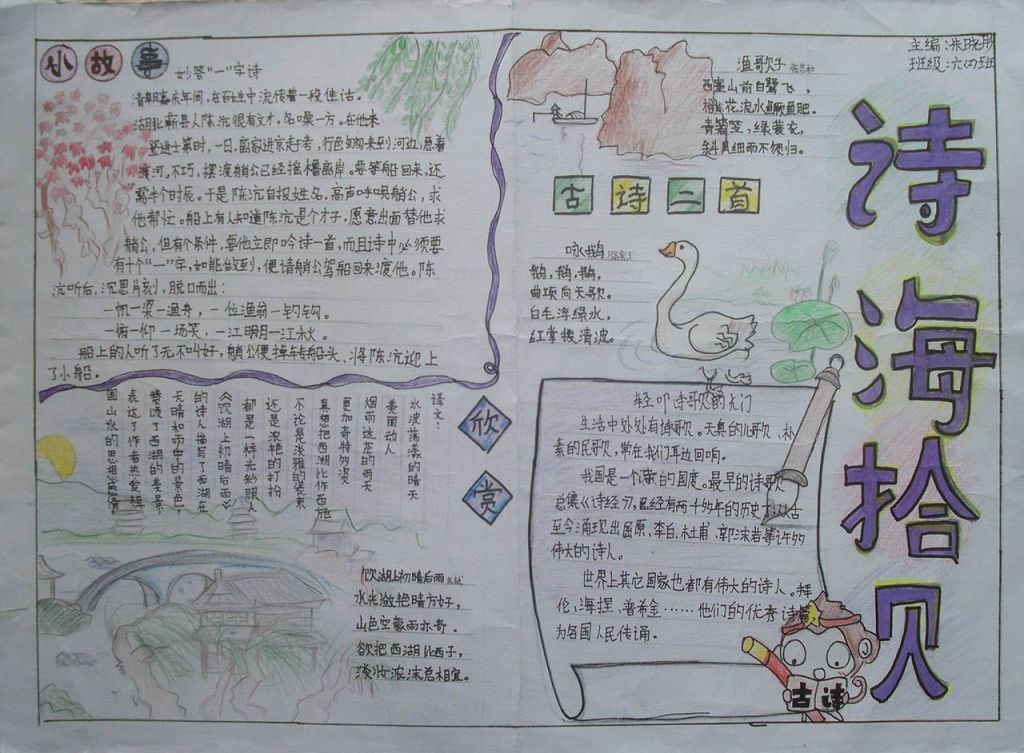 主编:朱晓彤
班级:六四班
诗海拾贝
小故事
妙答“一”字诗
清朝嘉庆年间,在百姓中流传着一段佳话。
湖北蕲县人陈沆很有文才,名噪一方。在他未
登进士第时,一日,
行色匆匆来到河边,急着
渡河。不巧,摆渡艄公已经摇橹离岸。要等船回来,还
需半个时辰。于是陈沆自报姓名,高声呼唤艄公,求
他帮忙。船上有人知道陈沆是个才子,愿意出面替他求
艄公,但有个条件,要他立即吟诗一首,而且诗中必须要
有十个“一”字,如能做到,便请艄公驾船回来渡他。陈
沆听后,沉思片刻,脱口而出:
一帆一桨一渔舟,一位渔翁一钓钩。
一俯一仰一场笑,一江明月一江秋。
船上的人听了无不叫好,艄公便掉转船头、将陈沆迎上
了小船。
渔歌子 张志和
西塞山前白鹭飞,
桃花流水鳜鱼肥。
青箬笠,绿蓑衣,
斜风细雨不须归。
古诗二首
咏鹅
鹅,鹅,鹅,
曲项向天歌。
白毛浮绿水,
红掌拨清波。
欣赏
译文:
水波荡漾的晴天
美丽动人
烟雨迷茫的雨天
更加奇特
真想把西湖化作西施
不论是淡雅的装束
还是浓艳的打扮
都是一样光彩照人
《饮湖上初晴后雨》
的诗人描写了西湖在
天晴和雨中的景色
赞颂了西湖的美景
表达了作者热爱祖
国山水的思想感情
饮湖上初晴后雨
水光潋艳晴方好,
山色空蒙雨亦奇。
欲把西湖比西子,
淡妆浓沫总相宜。
轻叩诗歌的大门
生活中处处有诗歌。天真的儿歌、朴
素的民歌,常在我们耳边回响。
我国是一个诗歌的国度。最早的诗歌
总集《诗经》,已经有两千多年的历史了,从古
至今涌现出屈原、李白、杜甫、郭沫若等许多
伟大的诗人。
世界上其它国家也都有伟大的诗人。拜
伦、海捏、普希金……他们的优秀诗篇
为各国人民传诵。
古诗